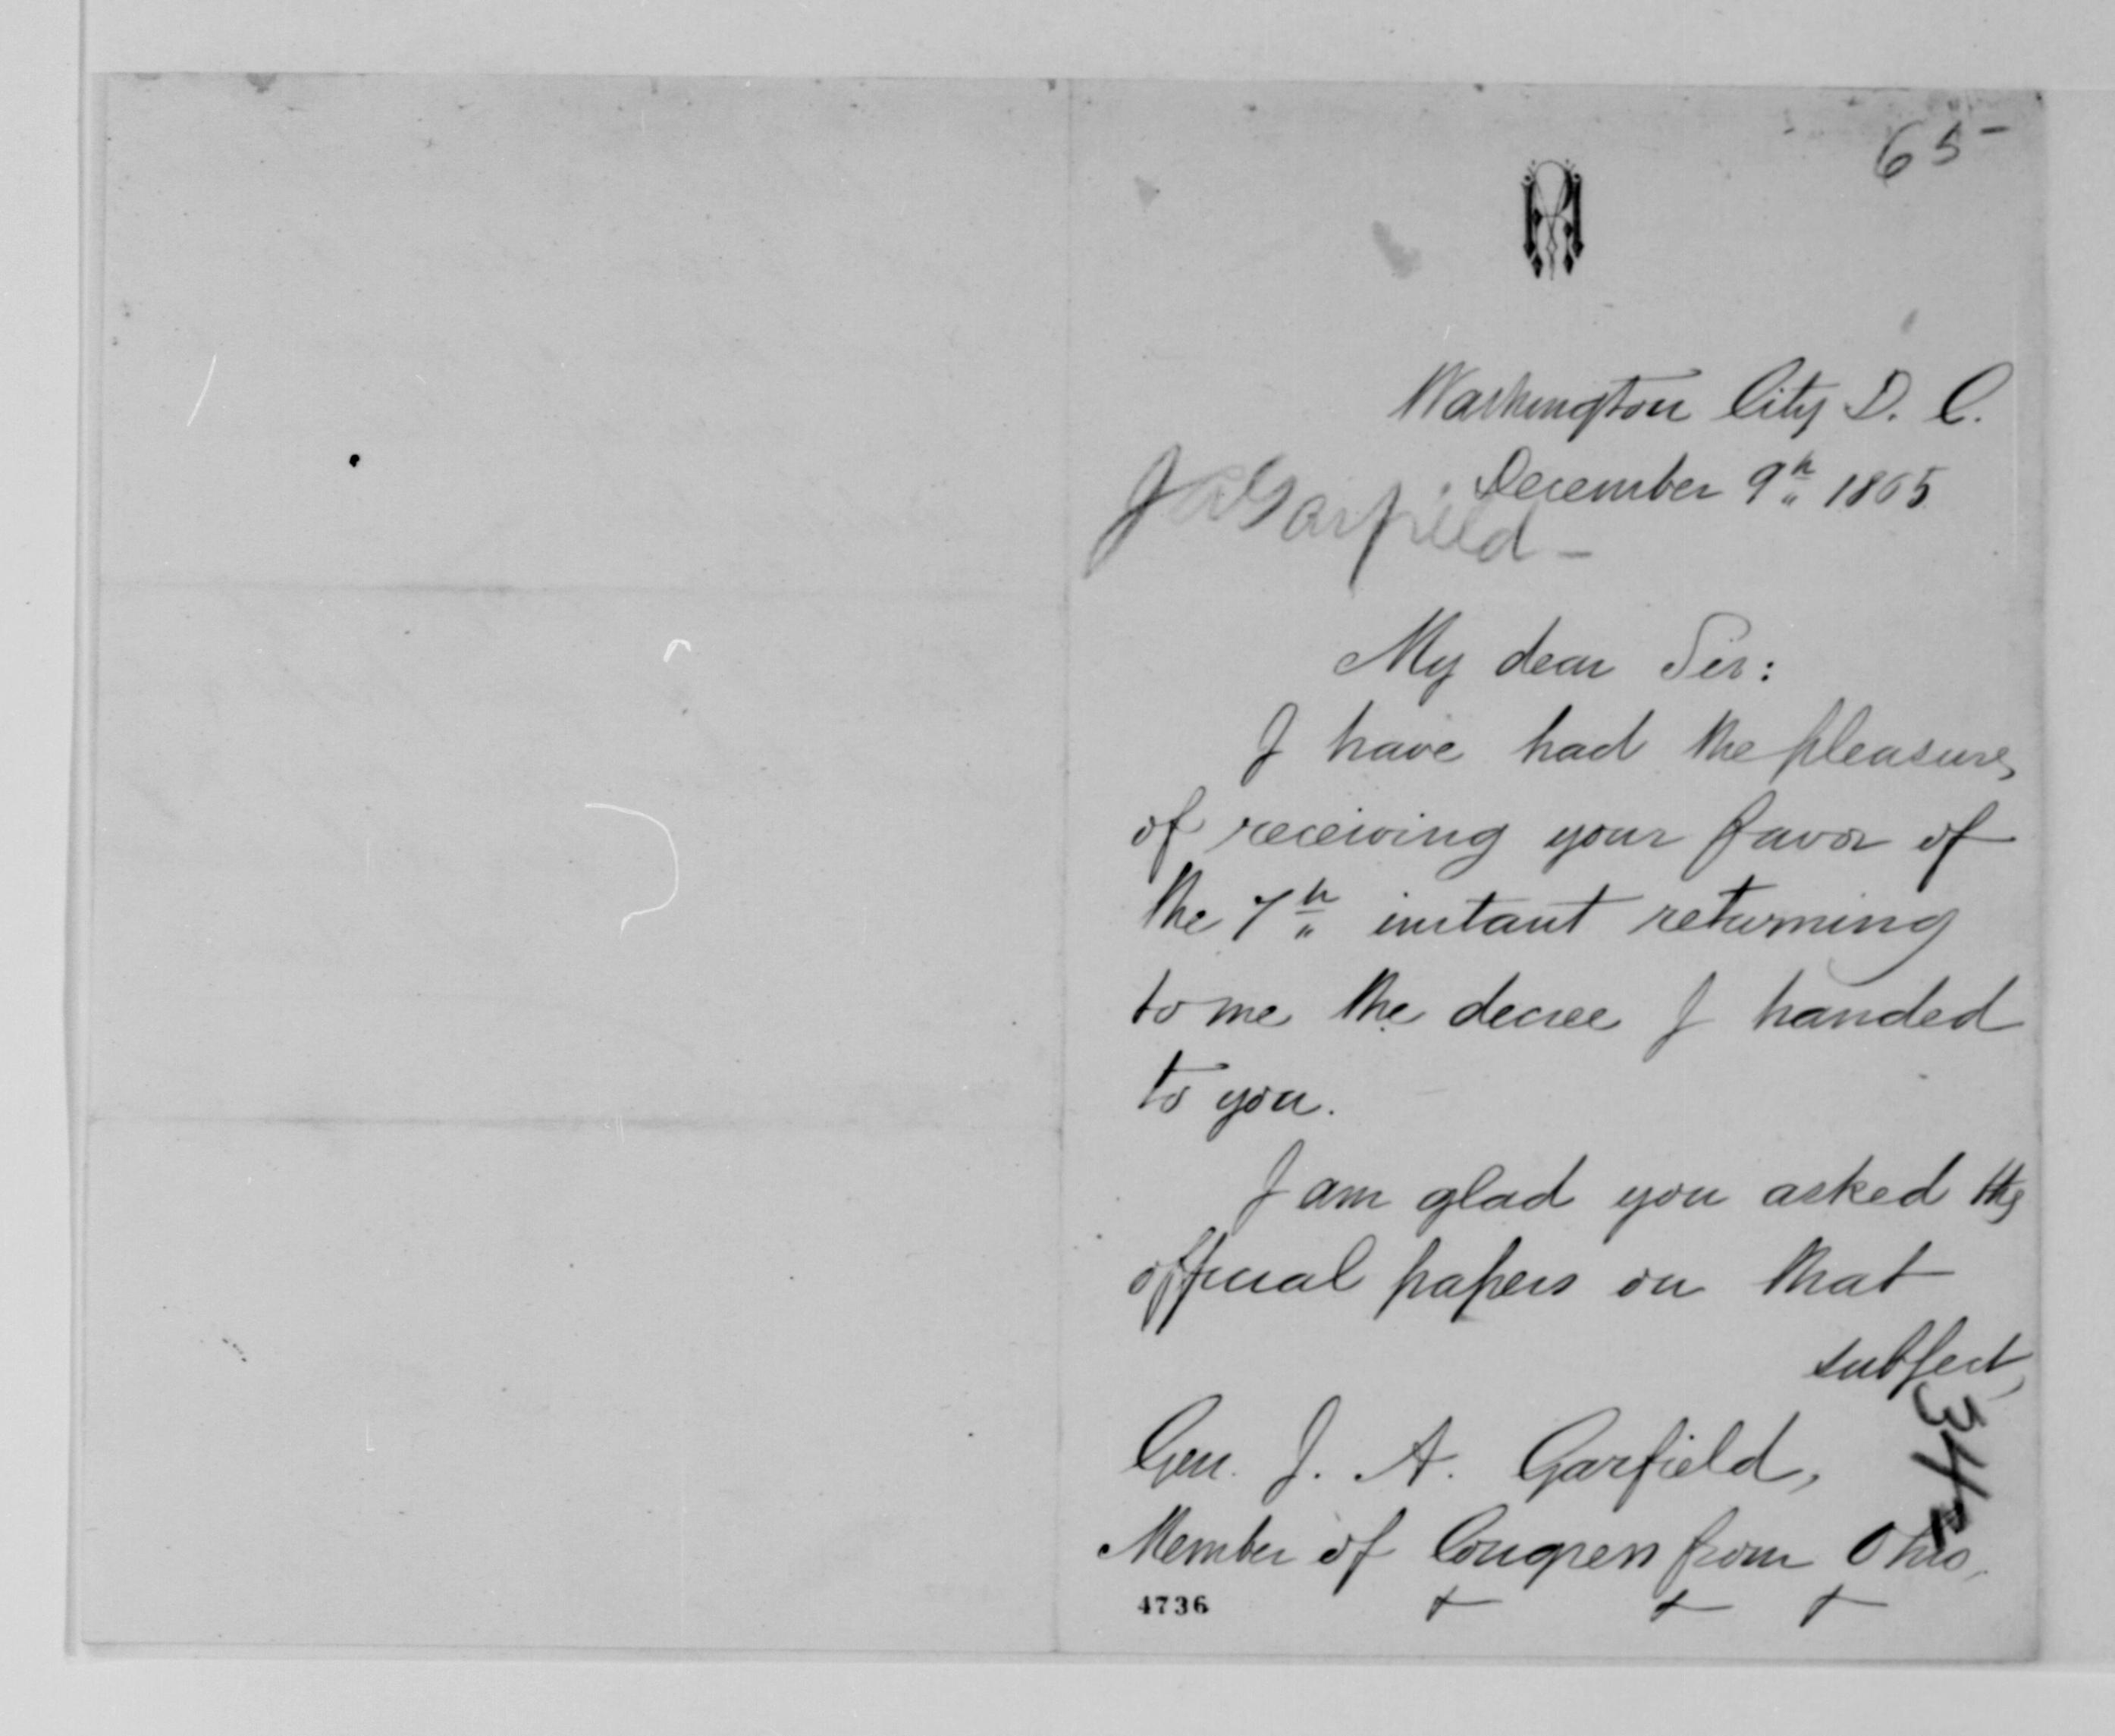 65-
Washington City D. C.
December 9th 1865
J A Garfield -
My dear Sir:
I have had the pleasure
of receiving your favor of
the 7th instant returning
to me the decree I handed
to you.
I am glad you asked the
official papers on that
subject,
34
Gen. J. A. Garfield,
Member of Congress from Ohio,
4736